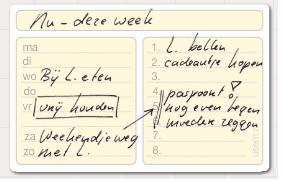 Nu - deze week
ma
di
wo Bij L. eten
do
vr vrij houden
za Weekendje weg
zo met L.
1. L. bellen
2. cadeautje kopen
3.
4. paspoort!
5. nog even tegen
6. moeder zeggen
7.
8.